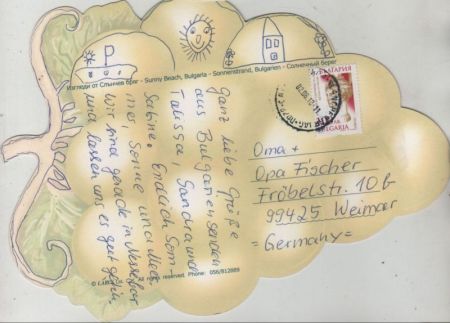 Изгледи от Слънчев бряг - Sunny Beach, Bulgaria - Sonnenstrand, Bulgarien - Солнечный берег
ganz liebe Grüße
aus Bulgarien senden
Talissa, Sandra und
Sabine. Endlich Som
mer, Sonne und Meer
Wir sind gerade in Nessebar
und lassen uns es gut gehen
БЪЛГАРИЯ
BULGARIA
Oma +
Opa Fischer
Fröbelstr. 10 b
99425 Weimar
= Germany =
All rights reserved Phone: 056/812889